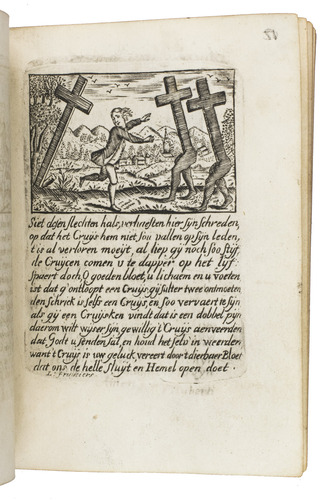 17
Siet desen slechten hals, verhaesten hier syn schreden,
op dat het Cruys hem niet sou vallen op syn leden,
t is al verloren moeyt, al liep gy noch soo styf
de Cruycen comen u te dapper op het lyf
spaert doch, O goeden bloet, u lichaem en u voeten
ist dat g'ontloopt een Cruys, gy sulter twee ontmoeten
den schrick is self een Cruys, en soo vervaert te syn
als gy een Cruysken vindt dat is een dobbel pyn
daerom wilt wyser syn, gewillig t'Cruys aenveerden
dat Godt u senden sal, en houd het selv in weerden
want t'Cruys is uw geluck, vereert door t'dierbaer Bloet
dat ons de helle sluyt en Hemel open doet.